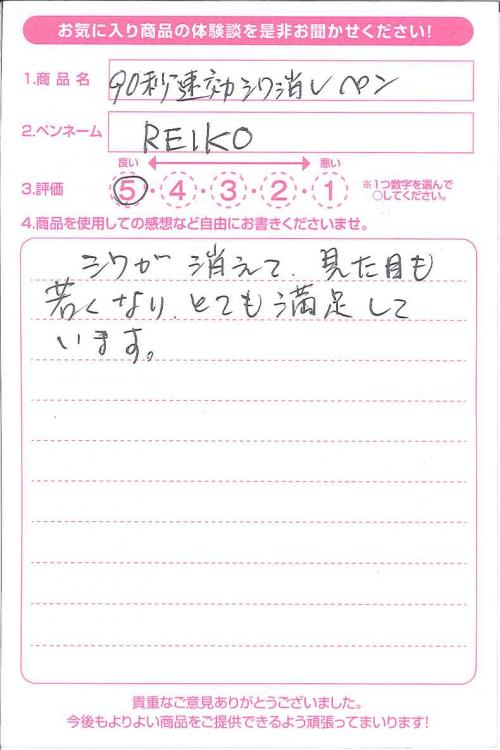 お気に入り商品の体験談を是非お聞かせください!
1.商品名 90秒速効シワ消しペン
2.ペンネーム REIKO
良い 悪い
3.評価 5・4・3・2・1 ※1つ数字を選んで
○してください。
4.商品を使用しての感想など自由にお書きくださいませ。
シワが消えて、見た目も
若くなり、とても満足して
います。
貴重なご意見ありがとうございました。
今後もよりよい商品をご提供できるよう頑張ってまいります!